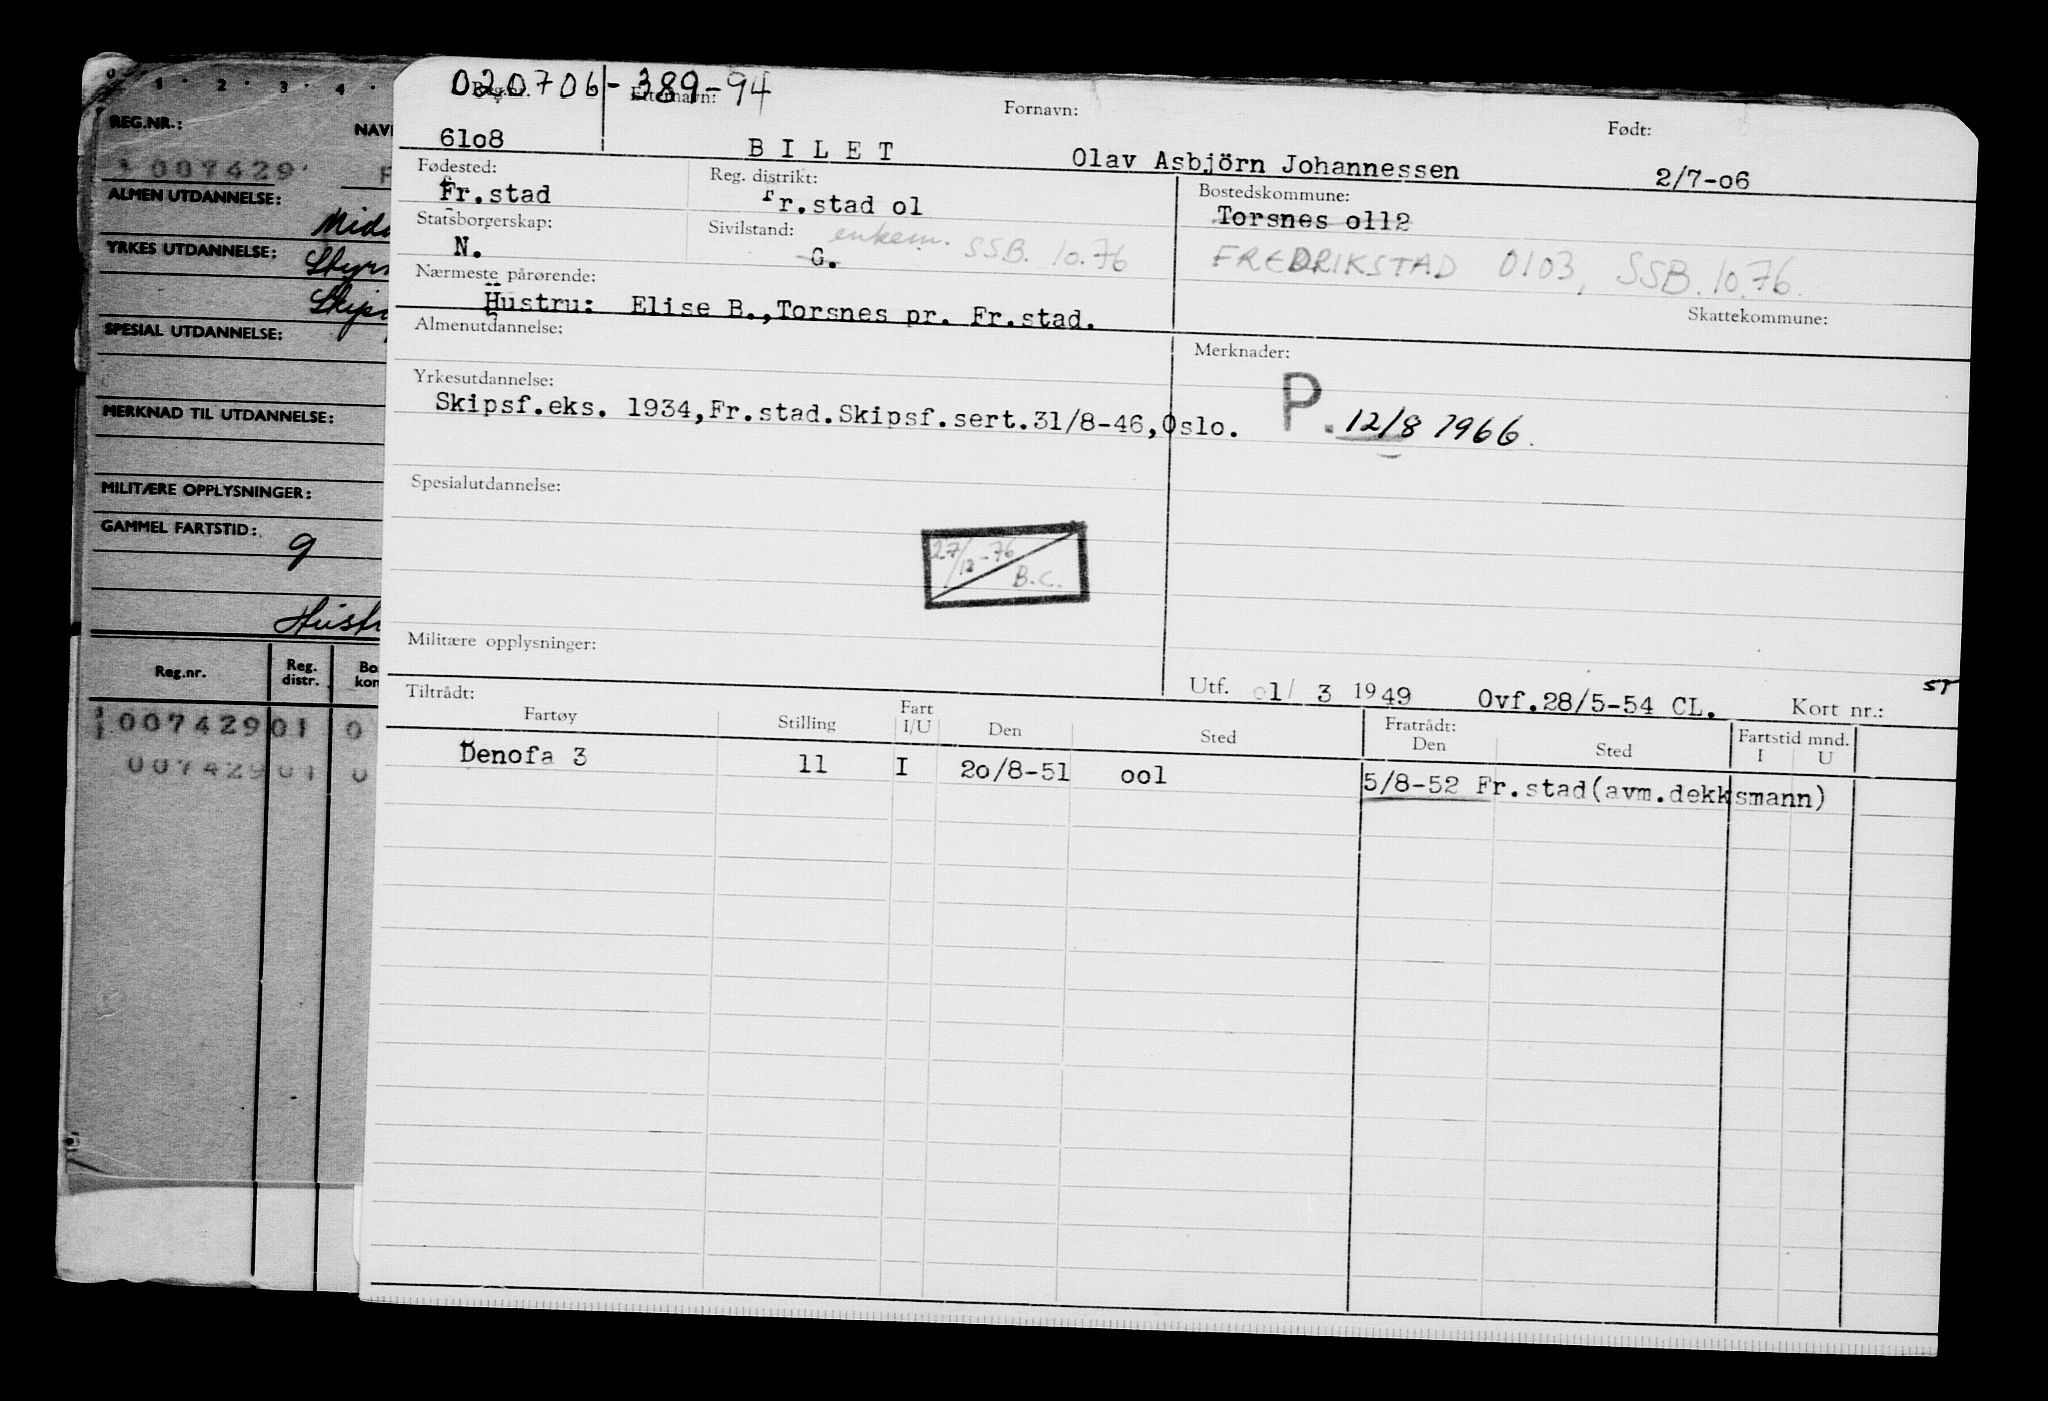 0 1 2 3 4
REG.NR.: NAV
007429
ALMEN UTDANNELSE:
YRKES UTDANNELSE:
SPESIAL UTDANNELSE:
MERKNAD TIL UTDANNELSE:
MILITÆRE OPPLYSNINGER:
GAMMEL FARTSTID:
9
Reg.nr. Reg. distr. Bo kom
007429 01 0
007429 01 0
020706-389-94
Reg.nr. Etternavn: Fornavn: Født:
6108 BILET Olav Asbjörn Johannessen 2/7-06
Fødested: Reg. distrikt: Bostedskommune:
Fr.stad Fr.stad 01 Torsnes 0112
Statsborgerskap: Sivilstand: enkem. SSB. 10.76 FREDRIKSTAD 0103, SSB. 10.76.
N. G.
Nærmeste pårørende:
Hustru: Elise B.,Torsnes pr. Fr.stad. Skattekommune:
Almenutdannelse: Merknader:
Yrkesutdannelse:
Skipsf.eks. 1934,Fr.stad.Skipsf.sert.31/8-46,Oslo. P. 12/8 1966.
Spesialutdannelse:
27/12-76
B.C.
Militære opplysninger:
Utf. 01/ 3 1949 Ovf.28/5-54 CL. Kort nr.: ST
Tiltrådt: Fratrådt:
Fartøy Stilling Fart I/U Den Sted Den Sted Fartstid mnd. I U
Denofa 3 11 I 20/8-51 001 5/8-52 Fr.stad(avm.dekksmann)